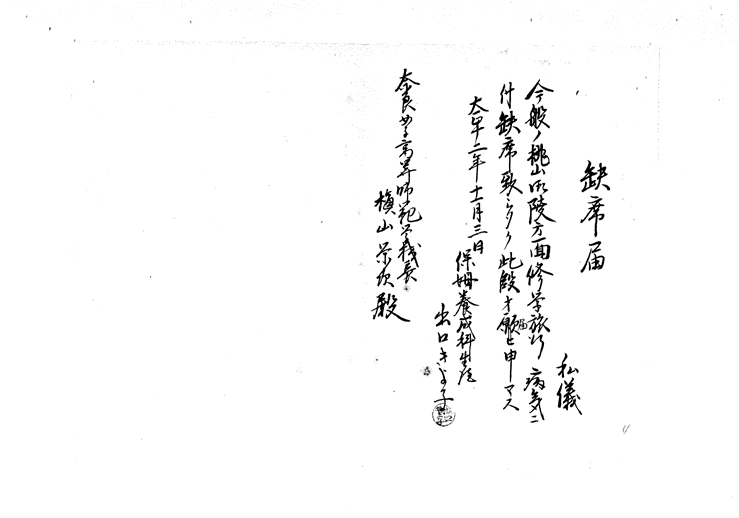 缺席届
私儀
今般ノ桃山御陵方面修学旅行病気ニ
付缺席致シタク此段オ願ヒ申マス
届
大正二年十一月三日
保姆養成科生徒
出口き
奈良女子高等師範学校長
槇山栄次殿